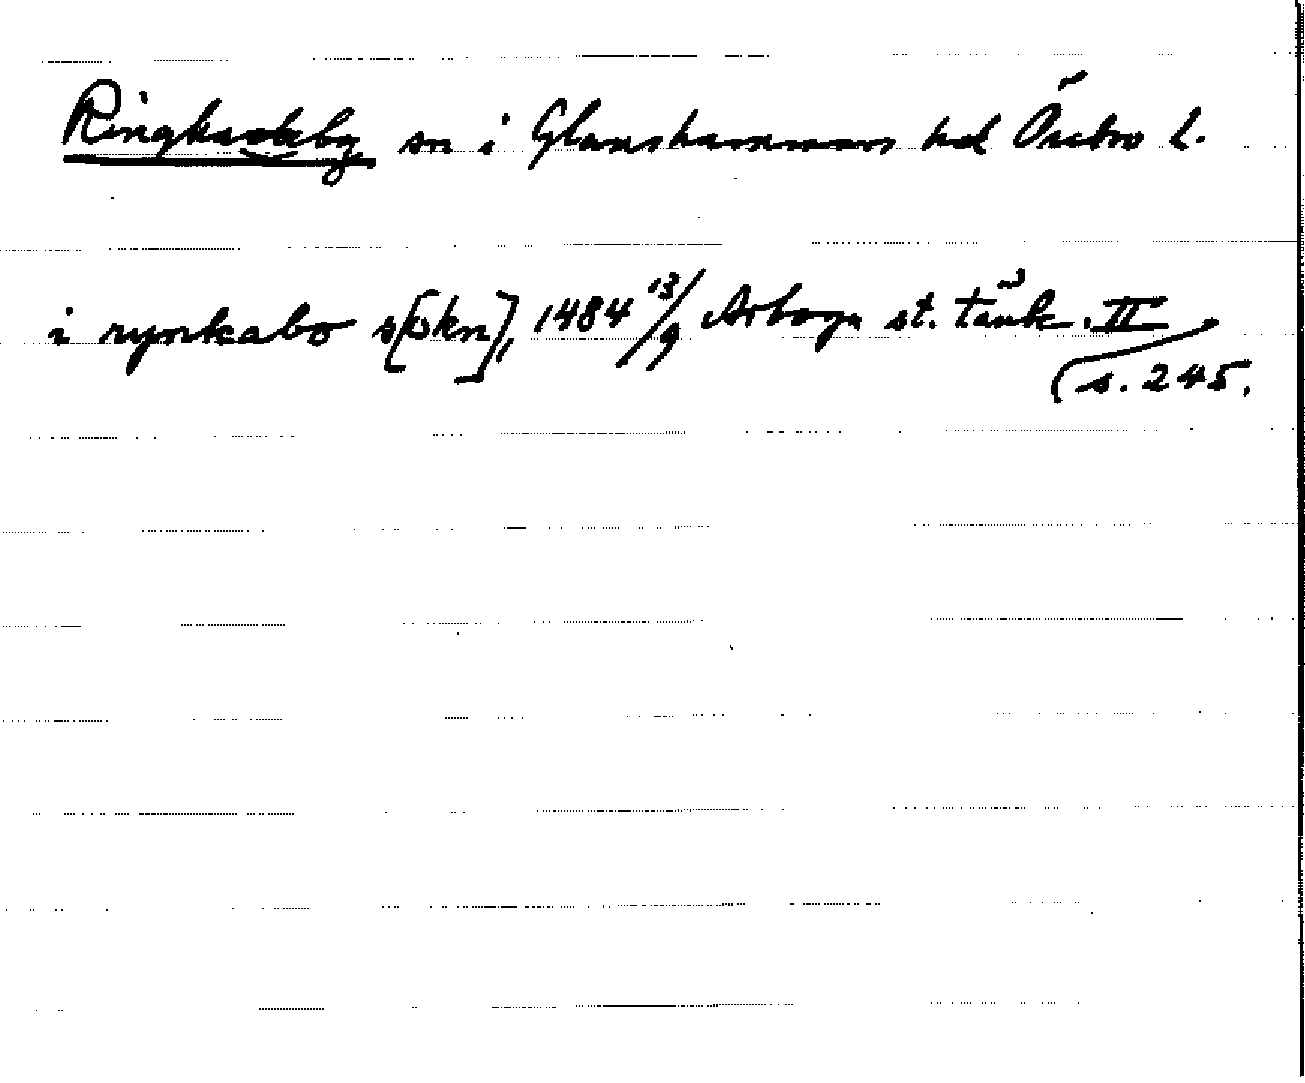 Ringkarleby sn i Glanshammars hd Örebro l.
i rynkabo s[okn], 1484 13/9 Arboga st. tänk. II
(s. 245.